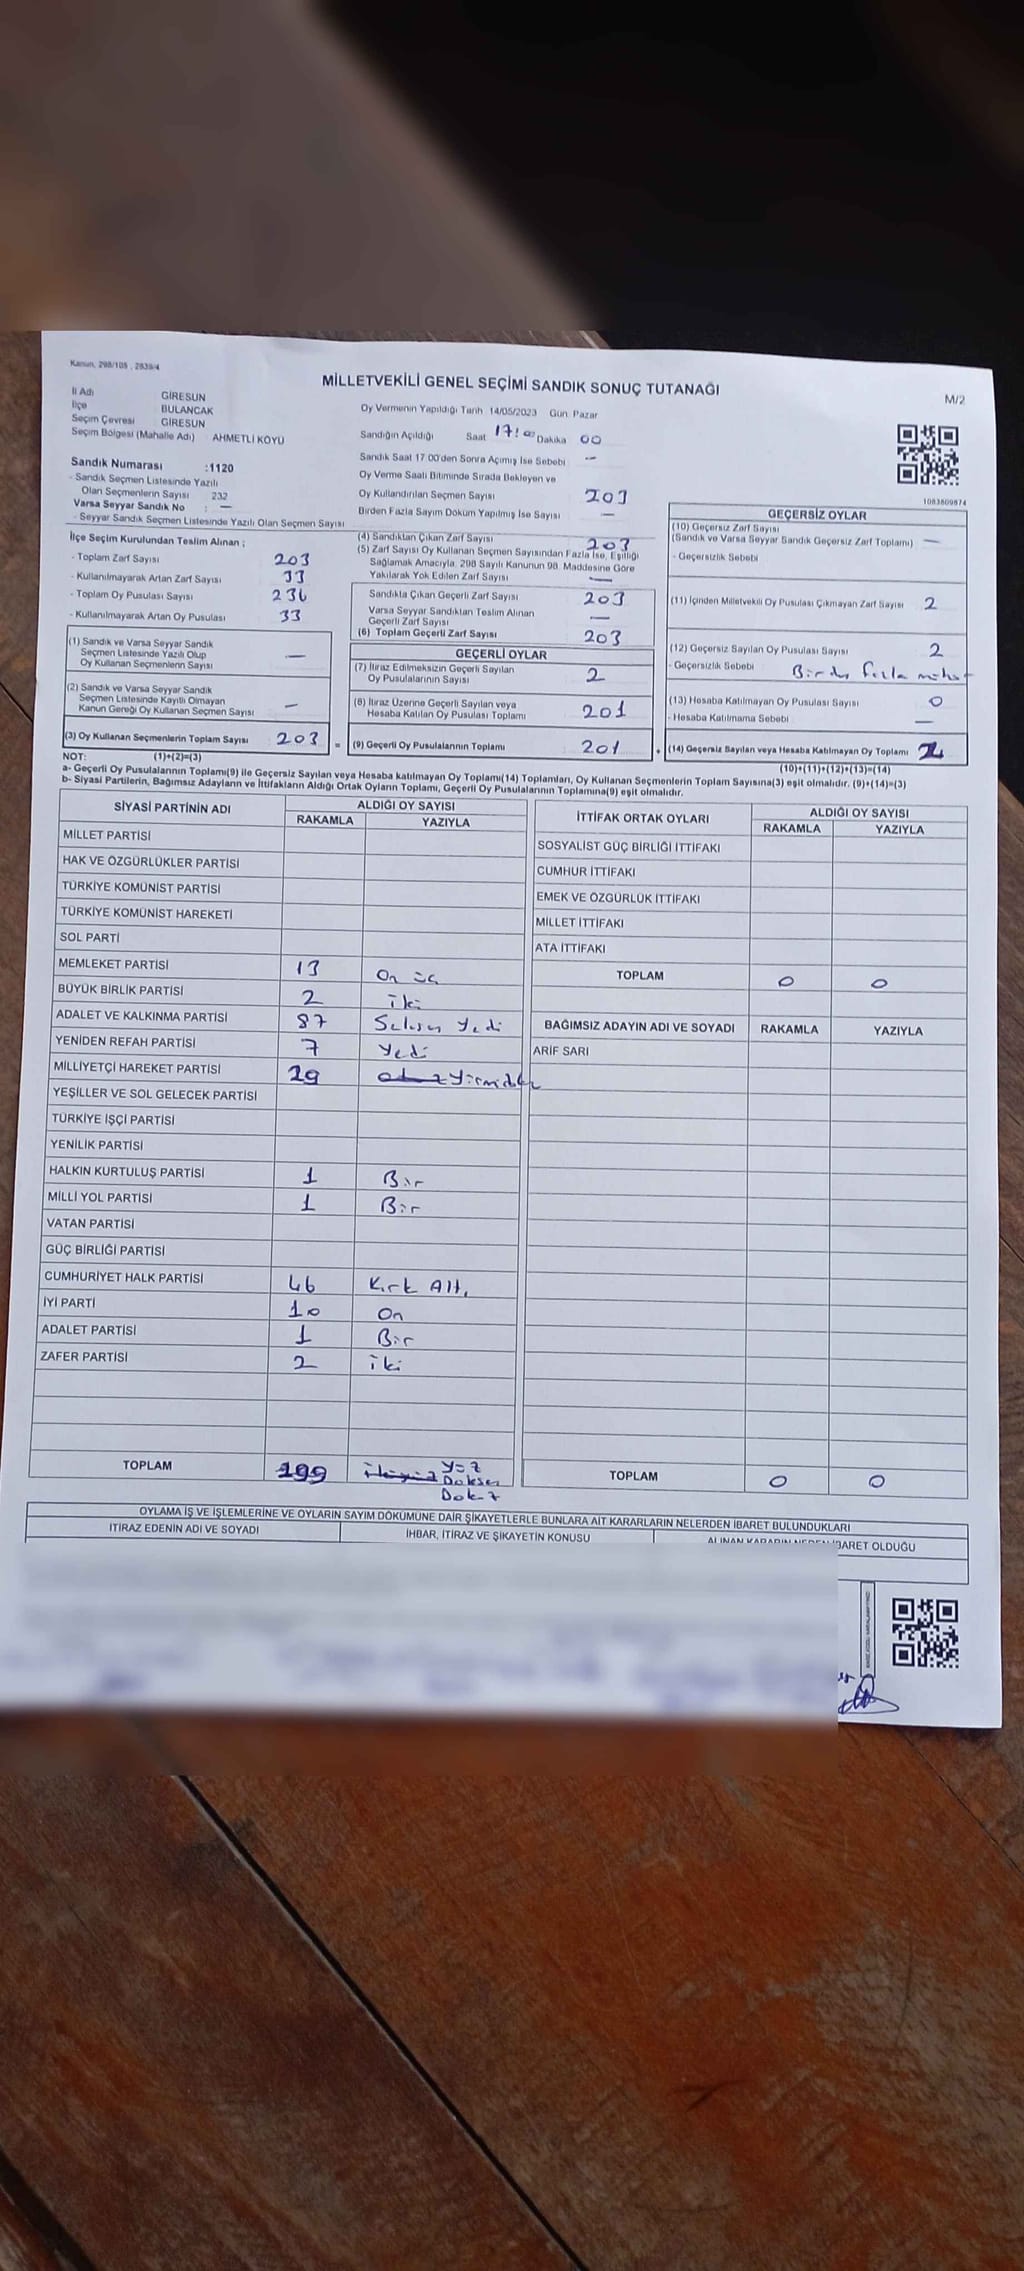 Kanun, 298/105 , 2839/4
MİLLETVEKİLİ GENEL SEÇİMİ SANDIK SONUÇ TUTANAĞI
M/2
İl Adı GİRESUN
İlçe BULANCAK
Seçim Çevresi GİRESUN
Seçim Bölgesi (Mahalle Adı) AHMETLİ KÖYÜ
Oy Vermenin Yapıldığı Tarih 14/05/2023 Gün. Pazar
Sandığın Açıldığı Saat 17:00 Dakika 00
Sandık Saat 17.00'den Sonra Açımış İse Sebebi —
Oy Verme Saati Bitiminde Sırada Bekleyen ve
Oy Kullandırılan Seçmen Sayısı 203
Birden Fazla Sayım Döküm Yapılmış İse Sayısı —
Sandık Numarası :1120
- Sandık Seçmen Listesinde Yazılı
Olan Seçmenlerin Sayısı 232
Varsa Seyyar Sandık No : —
- Seyyar Sandık Seçmen Listesinde Yazılı Olan Seçmen Sayısı
1083809874
İlçe Seçim Kurulundan Teslim Alınan ;
- Toplam Zarf Sayısı 203
- Kullanılmayarak Artan Zarf Sayısı 33
- Toplam Oy Pusulası Sayısı 236
- Kullanılmayarak Artan Oy Pusulası 33
(1) Sandık ve Varsa Seyyar Sandık
Seçmen Listesinde Yazılı Olup
Oy Kullanan Seçmenlerin Sayısı —
(2) Sandık ve Varsa Seyyar Sandık
Seçmen Listesinde Kayıtlı Olmayan
Kanun Gereği Oy Kullanan Seçmen Sayısı —
(3) Oy Kullanan Seçmenlerin Toplam Sayısı 203 =
(4) Sandıktan Çıkan Zarf Sayısı 203
(5) Zarf Sayısı Oy Kullanan Seçmen Sayısından Fazla İse, Eşitliği
Sağlamak Amacıyla, 298 Sayılı Kanunun 98. Maddesine Göre
Yakılarak Yok Edilen Zarf Sayısı —
Sandıkta Çıkan Geçerli Zarf Sayısı 203
Varsa Seyyar Sandıktan Teslim Alınan
Geçerli Zarf Sayısı —
(6) Toplam Geçerli Zarf Sayısı 203
GEÇERLİ OYLAR
(7) İtiraz Edilmeksizin Geçerli Sayılan
Oy Pusulalarının Sayısı 2
(8) İtiraz Üzerine Geçerli Sayılan veya
Hesaba Katılan Oy Pusulası Toplamı 201
(9) Geçerli Oy Pusulalarının Toplamı 201 +
GEÇERSİZ OYLAR
(10) Geçersiz Zarf Sayısı
(Sandık ve Varsa Seyyar Sandık Geçersiz Zarf Toplamı) —
- Geçersizlik Sebebi
(11) İçinden Milletvekili Oy Pusulası Çıkmayan Zarf Sayısı 2
(12) Geçersiz Sayılan Oy Pusulası Sayısı 2
- Geçersizlik Sebebi Birden fazla mühür
(13) Hesaba Katılmayan Oy Pusulası Sayısı 0
- Hesaba Katılmama Sebebi —
(14) Geçersiz Sayılan veya Hesaba Katılmayan Oy Toplamı
NOT: (1)+(2)=(3)
(10)+(11)+(12)+(13)=(14)
a- Geçerli Oy Pusulalarının Toplamı(9) ile Geçersiz Sayılan veya Hesaba katılmayan Oy Toplamı(14) Toplamları, Oy Kullanan Seçmenlerin Toplam Sayısına(3) eşit olmalıdır. (9)+(14)=(3)
b- Siyasi Partilerin, Bağımsız Adayların ve İttifakların Aldığı Ortak Oyların Toplamı, Geçerli Oy Pusulalarının Toplamına(9) eşit olmalıdır.
SİYASİ PARTİNİN ADI ALDIĞI OY SAYISI
RAKAMLA YAZIYLA
MİLLET PARTİSİ
HAK VE ÖZGÜRLÜKLER PARTİSİ
TÜRKİYE KOMÜNİST PARTİSİ
TÜRKİYE KOMÜNİST HAREKETİ
SOL PARTİ
MEMLEKET PARTİSİ 13 On üç
BÜYÜK BİRLİK PARTİSİ 2 iki
ADALET VE KALKINMA PARTİSİ 87 Seksen Yedi
YENİDEN REFAH PARTİSİ 7 Yedi
MİLLİYETÇİ HAREKET PARTİSİ 29
YEŞİLLER VE SOL GELECEK PARTİSİ
TÜRKİYE İŞÇİ PARTİSİ
YENİLİK PARTİSİ
HALKIN KURTULUŞ PARTİSİ 1 Bir
MİLLİ YOL PARTİSİ 1 Bir
VATAN PARTİSİ
GÜÇ BİRLİĞİ PARTİSİ
CUMHURİYET HALK PARTİSİ 46 Kırk Altı
İYİ PARTİ 10 On
ADALET PARTİSİ 1 Bir
ZAFER PARTİSİ 2 iki
TOPLAM 199 Yüz
Doksan
Dokuz
İTTİFAK ORTAK OYLARI ALDIĞI OY SAYISI
RAKAMLA YAZIYLA
SOSYALİST GÜÇ BİRLİĞİ İTTİFAKI
CUMHUR İTTİFAKI
EMEK VE ÖZGÜRLÜK İTTİFAKI
MİLLET İTTİFAKI
ATA İTTİFAKI
TOPLAM 0 0
BAĞIMSIZ ADAYIN ADI VE SOYADI RAKAMLA YAZIYLA
ARİF SARI
TOPLAM 0 0
OYLAMA İŞ VE İŞLEMLERİNE VE OYLARIN SAYIM DÖKÜMÜNE DAİR ŞİKAYETLERLE BUNLARA AİT KARARLARIN NELERDEN İBARET BULUNDUKLARI
İTİRAZ EDENİN ADI VE SOYADI İHBAR, İTİRAZ VE ŞİKAYETİN KONUSU ALINAN KARARIN NEDEN İBARET OLDUĞU